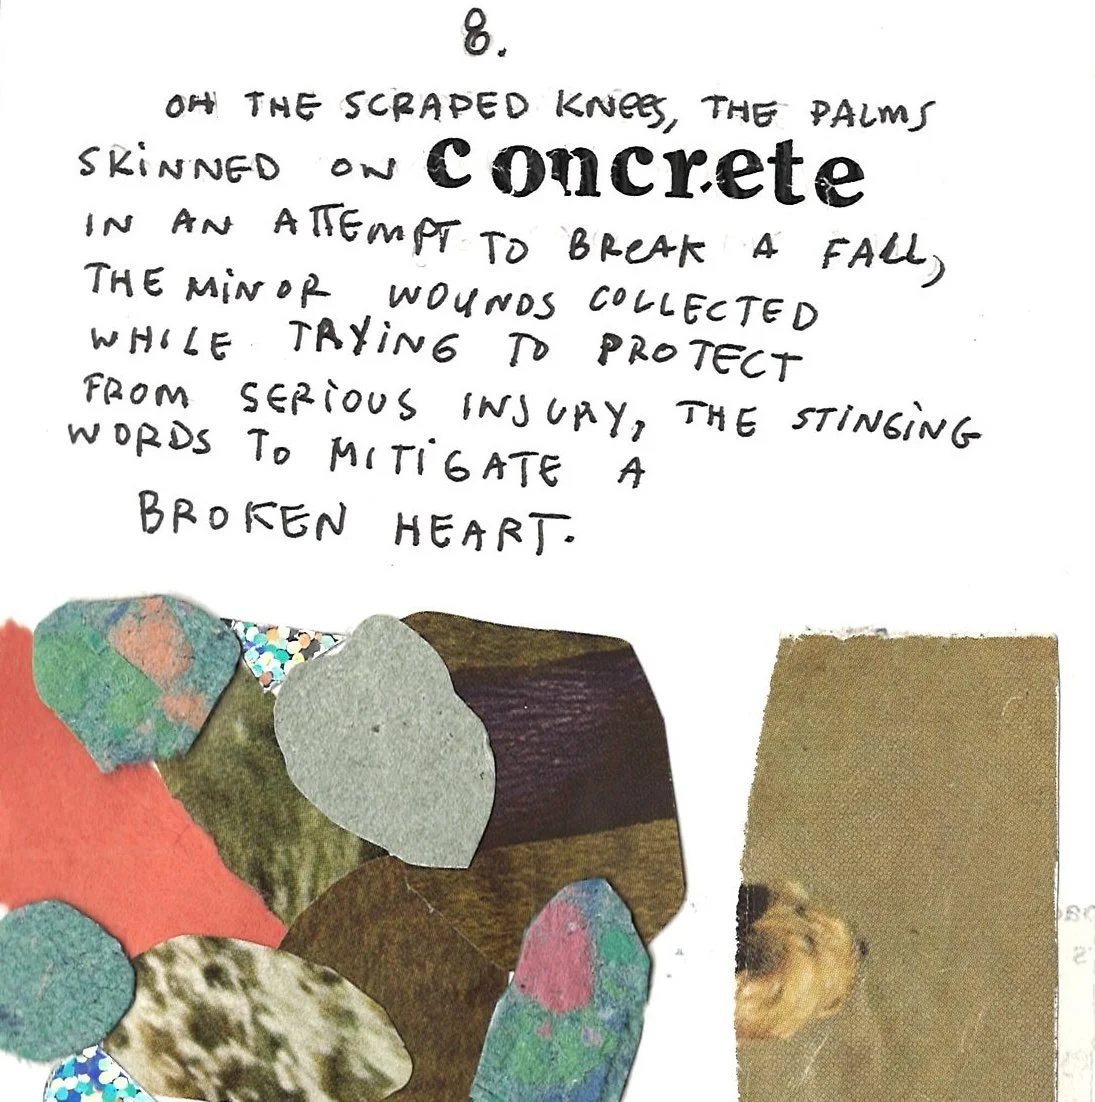 8.
OH THE SCRAPED KNEES, THE PALMS
SKINNED ON concrete
IN AN ATTEMPT TO BREAK A FALL,
THE MINOR WOUNDS COLLECTED
WHILE TRYING TO PROTECT
FROM SERIOUS INJURY, THE STINGING
WORDS TO MITIGATE A
BROKEN HEART.